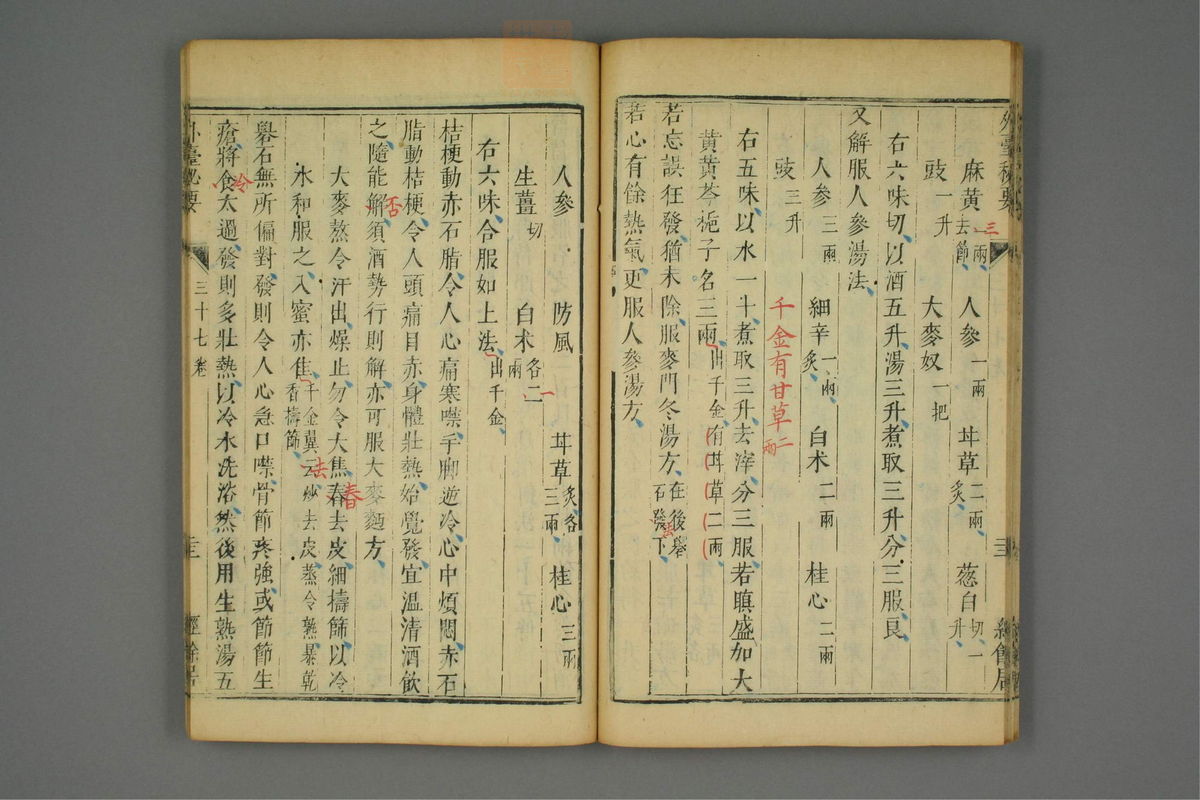 外臺秘要
麻黃去節三兩 人參一兩 甘草二兩炙 葱白切一升
豉一升 大麥奴一把
右六味切以酒五升湯三升煮取三升分三服良
又解服人參湯法
人參三兩 細辛一兩炙 白朮二兩 桂心二兩
豉三升 千金有甘草二兩
右五味以水一十煮取三升去滓分三服若瞋盛加大
黃黃芩梔子名三兩出千金有甘草二兩
若忘誤狂發猶未除服麥門冬湯方在後礜石發下
若心有餘熱氣更服人參湯方
人參 防風 甘草炙各三兩 桂心三兩
生薑切 白朮各二兩 一
右六味合服如上法出千金
桔梗動赤石脂令人心痛寒噤手脚逆冷心中煩悶赤石
脂動桔梗令人頭痛目赤身體壯熱始覺發宜温清酒飲
之隨能解須酒勢行則解亦可服大麥麵方 否
大麥熬令汗出燥止勿令大焦舂去皮細擣篩以冷 春
水和服之入蜜亦佳千金翼云炒去皮蒸令熟暴乾香擣篩 去
礜石無所偏對發則令人心急口噤骨節疼強或節節生
瘡將食太過發則多壯熱以冷水洗浴然後用生熟湯五 冷
外臺秘要 三十七卷 經餘居